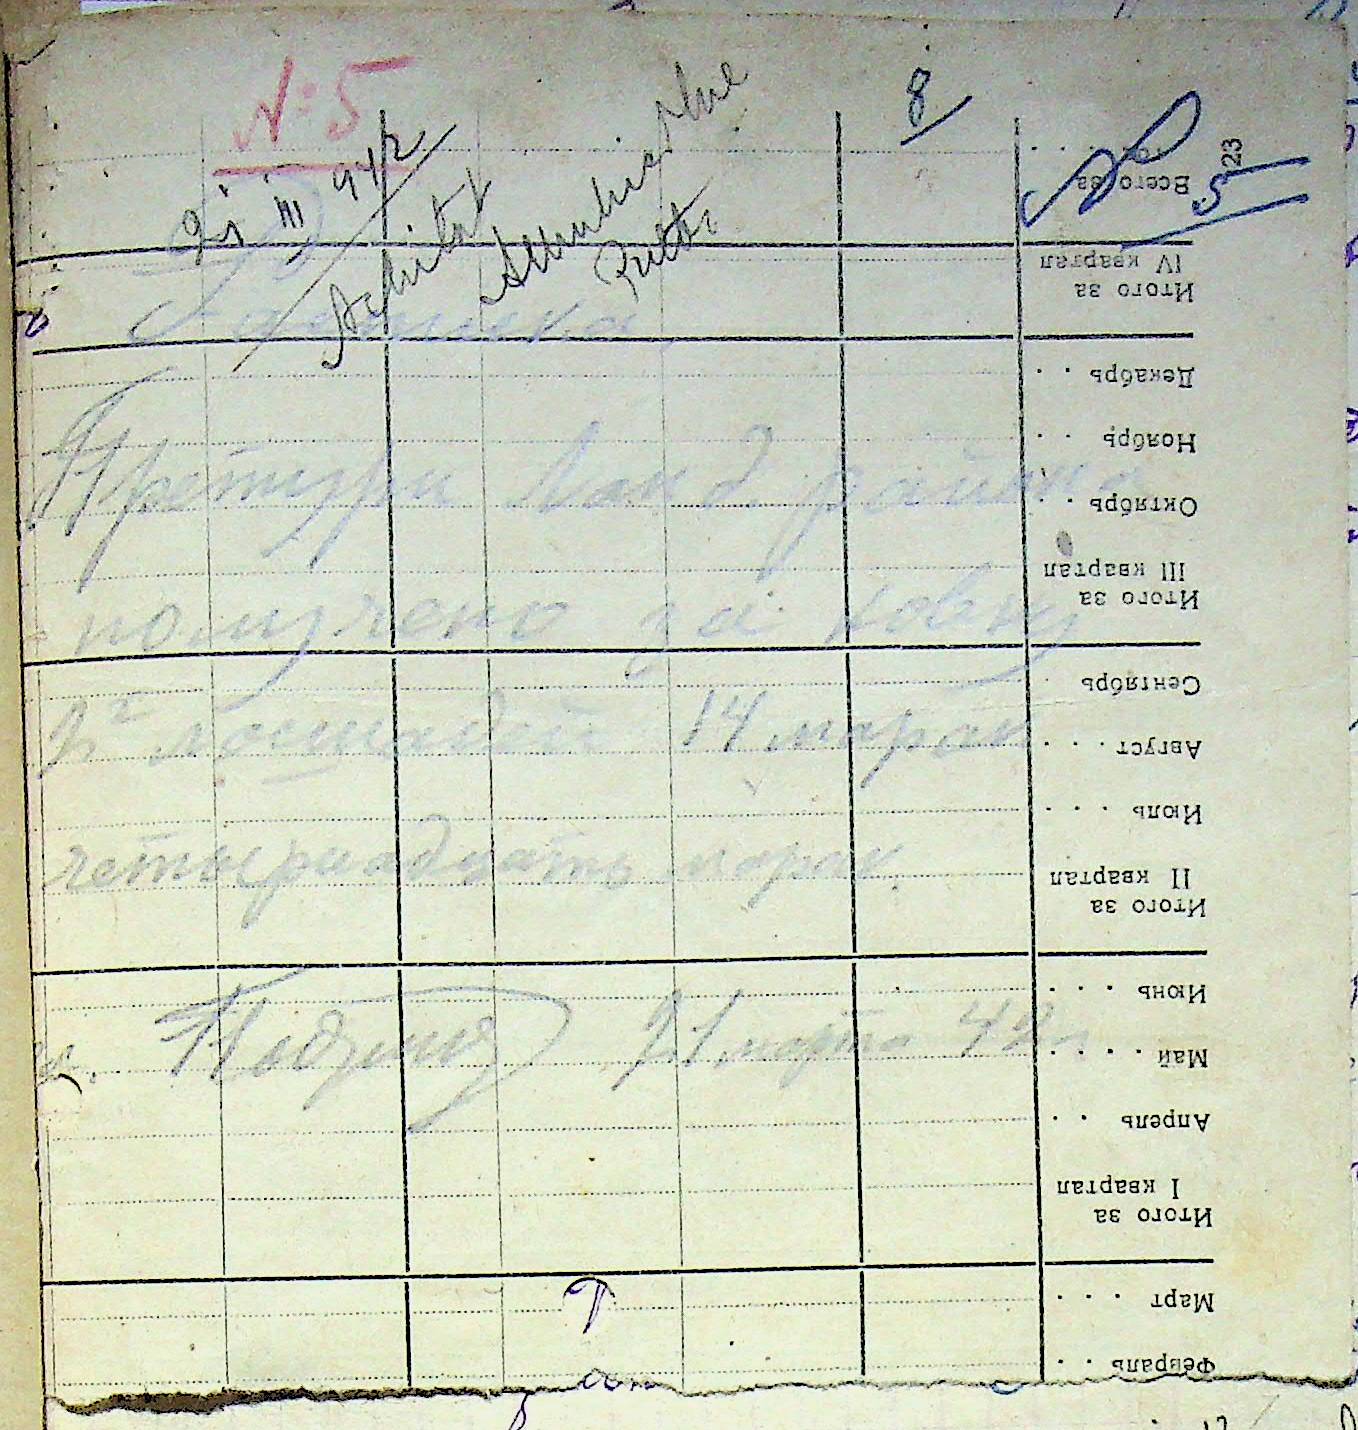 № 5
8
№ 5
23
21 III 942
Achitat
Расписка
Претури Ланд. района
получено за ковку
2х лошадей 14 марак
четырнадцать марак.
21 марта 42 г
Всего за
Итого за
IV квартал
Декабрь . .
Ноябрь . .
Октябрь . .
Итого за
III квартал
Сентябрь .
Август . . .
Июль . . .
Итого за
II квартал
Июнь . . .
Май . . . .
Апрель . .
Итого за
I квартал
Март . . .
Февраль . .